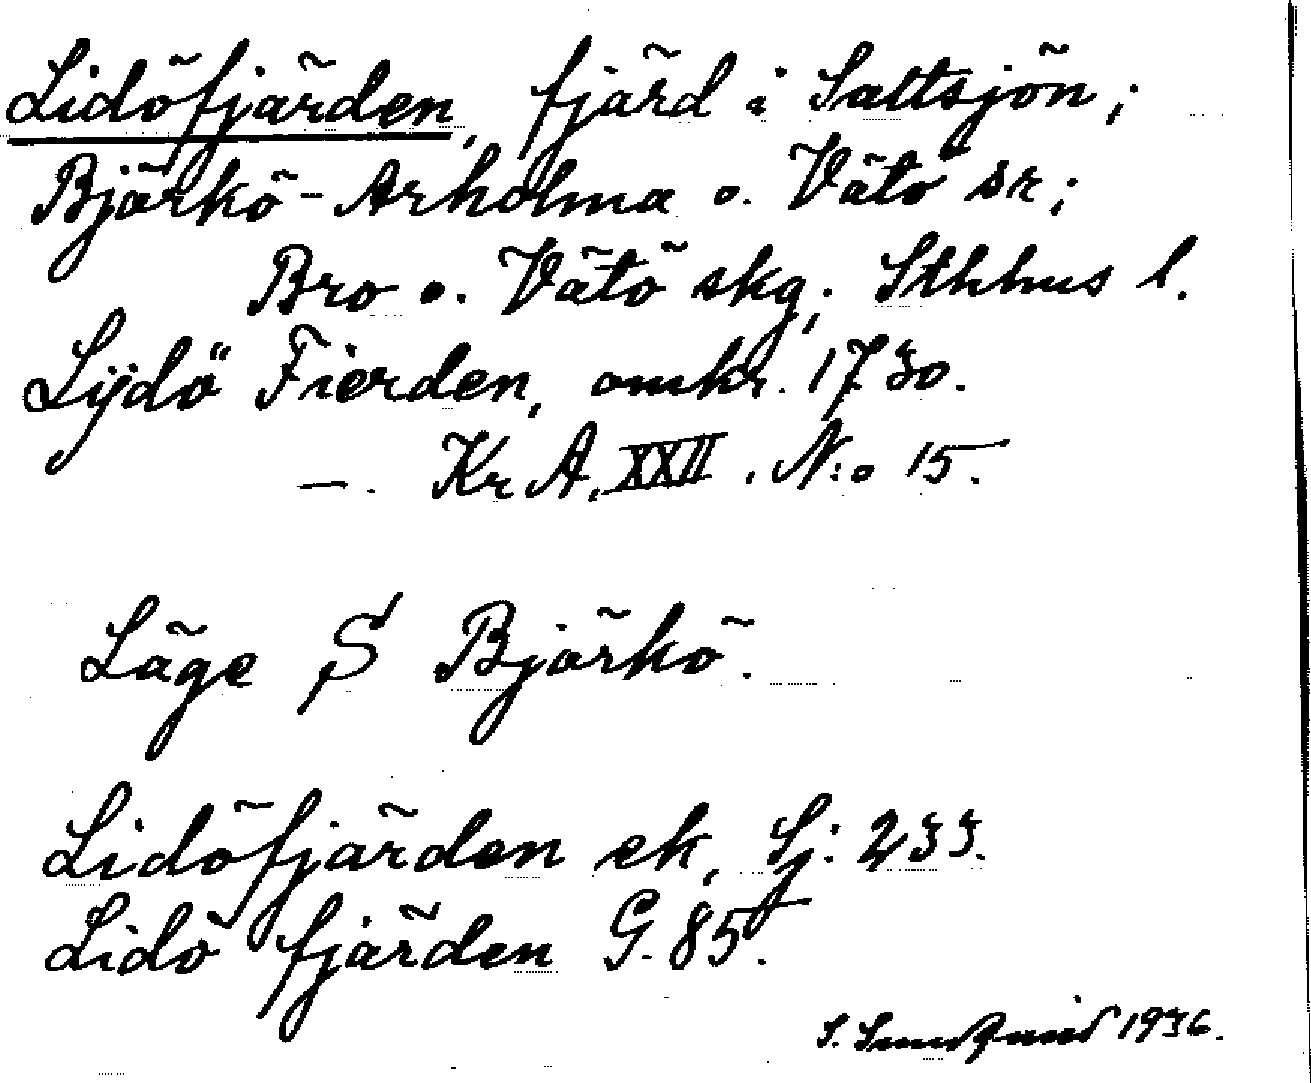 Lidöfjärden, fjärd i Saltsjön;
Björkö-Arholma o. Vätö sr;
Bro o. Vätö skg; Sthlms l.
Lijdö Fierden, omkr. 1730.
—. KrA. XXII. N:o 15.
Läge S Björkö.
Lidöfjärden ek, Sj: 233.
Lidö fjärden G. 85.
S. 1936.